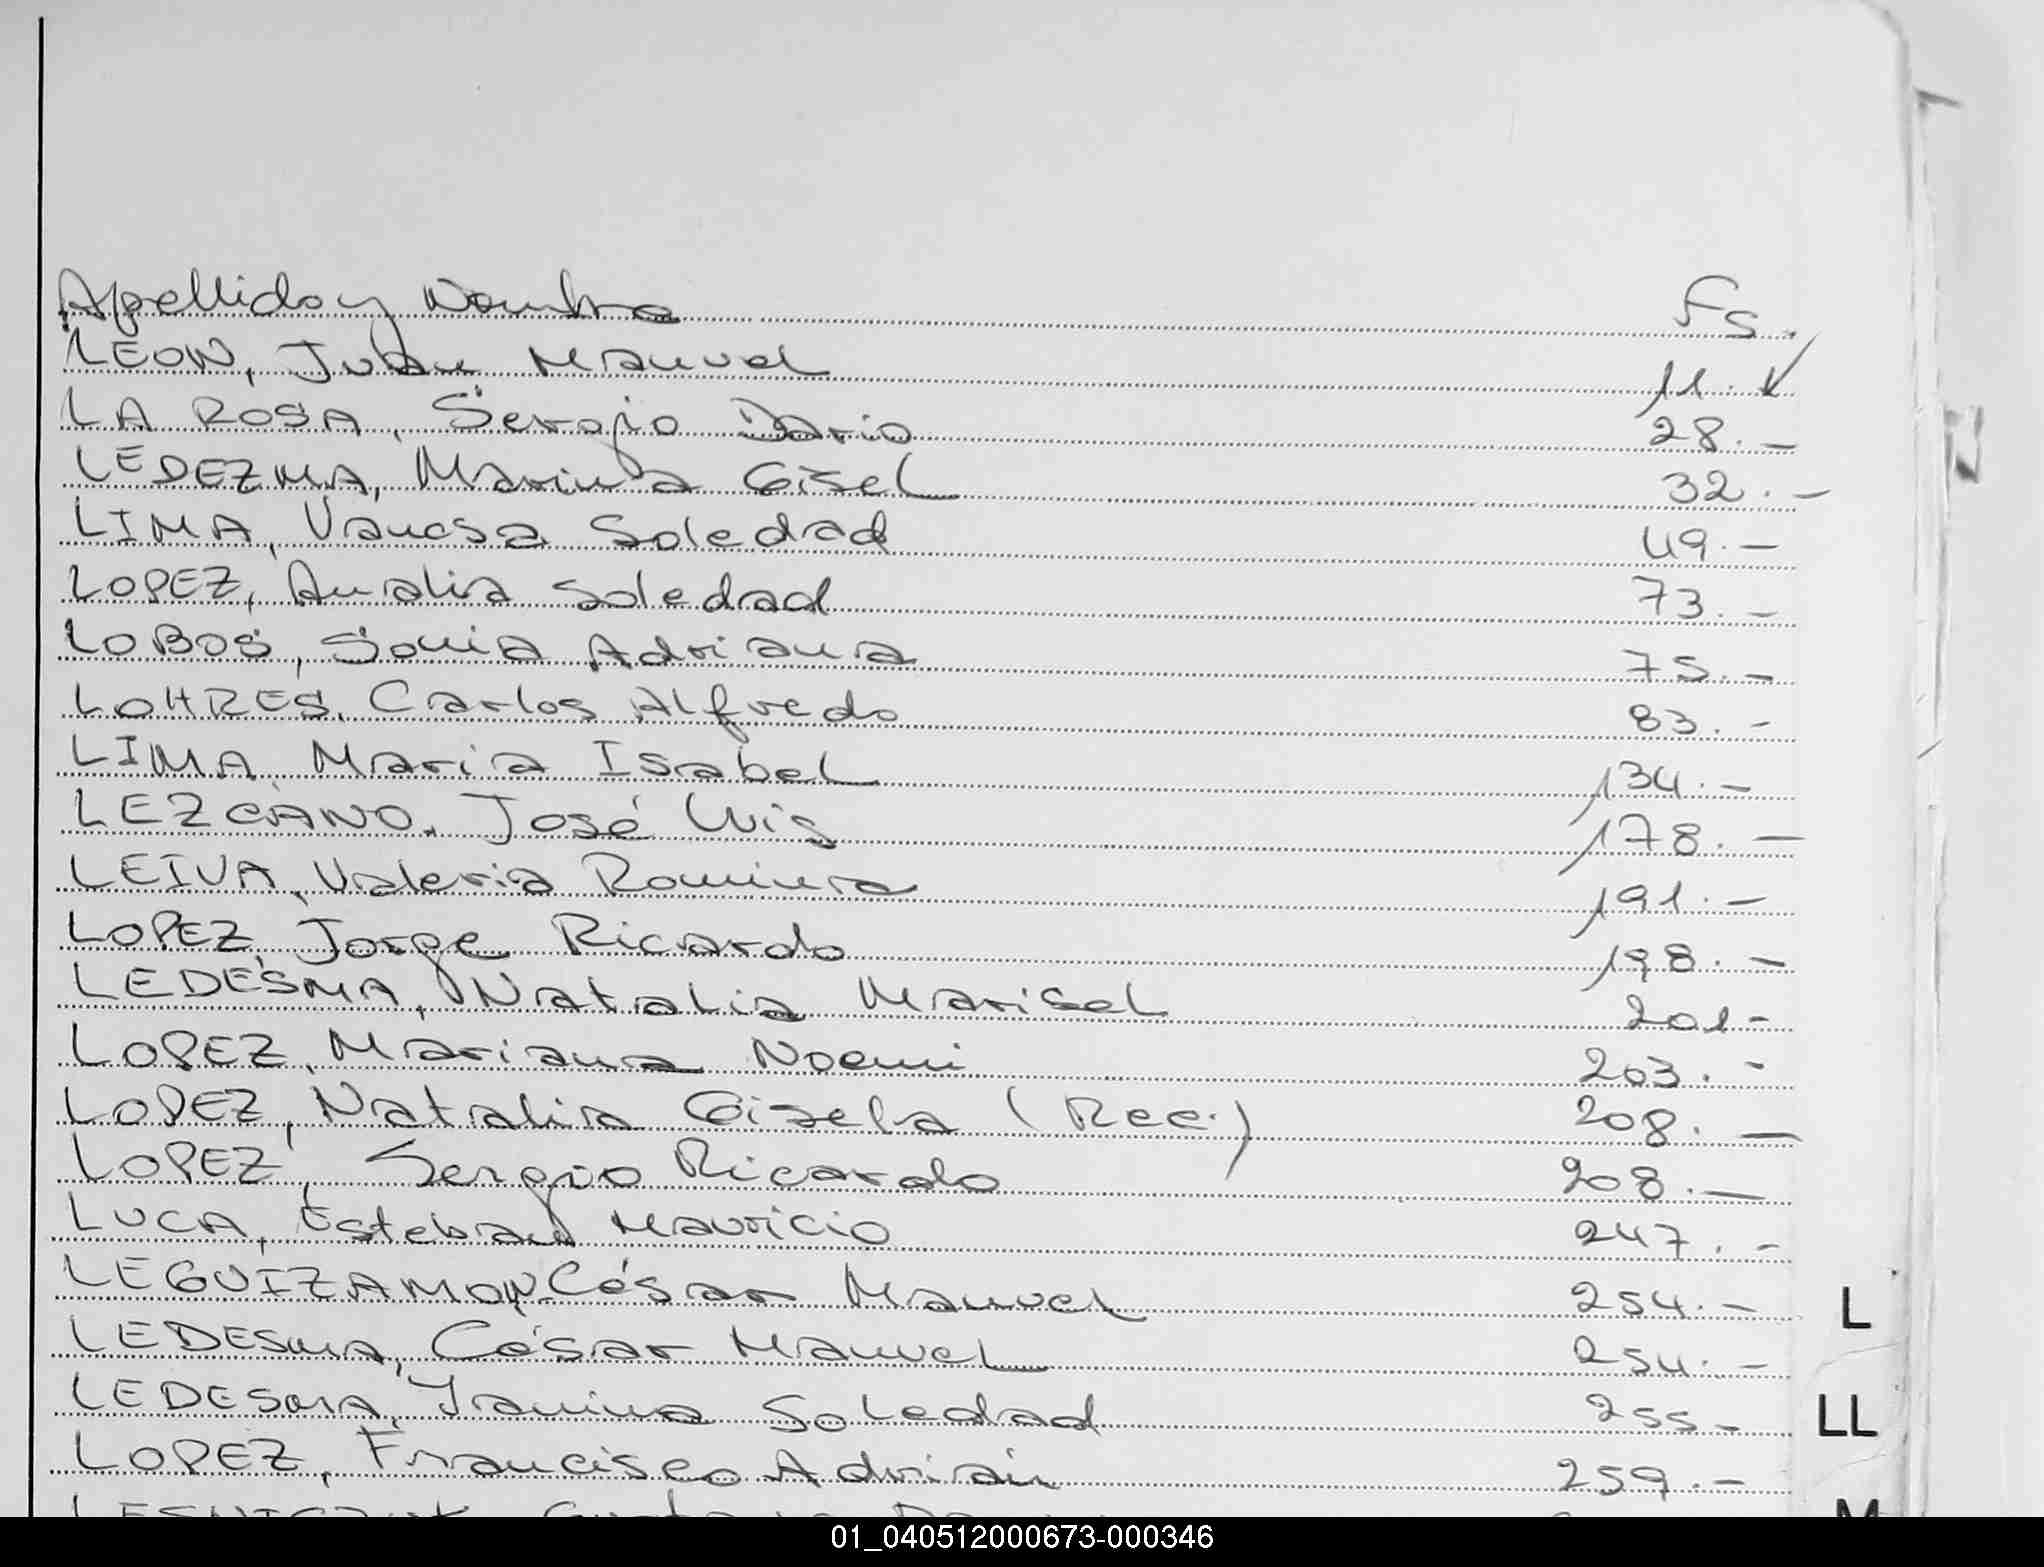 Apellido y Nombre Fs.
LEON, Juan Manuel 11. ✓
LA ROSA, Sergio Dario 28. -
LEDEZMA, Marina Gisel 32. -
LIMA, Vanesa Soledad 49. -
LOPEZ, Analia Soledad 73. -
LOBOS, Sonia Adriana 75. -
LOHRES, Carlos Alfredo 83. -
LIMA, Maria Isabel 134. -
LEZCANO, José Luis 178. -
LEIVA, Valeria Romina 191. -
LOPEZ, Jorge Ricardo 198. -
LEDESMA, Natalia Marisel 201 -
LOPEZ, Mariana Noemi 203. -
LOPEZ, Natalia Gisela (Rec.) 208. -
LOPEZ, Sergio Ricardo 208. -
LUCA, Esteban Mauricio 247. -
LEGUIZAMON, César Manuel 254. -
L
LEDESMA, César Manuel 254. -
LEDESMA, Yanina Soledad 255 -
LL
LOPEZ, Francisco Adrián 259. -
M
01_040512000673-000346